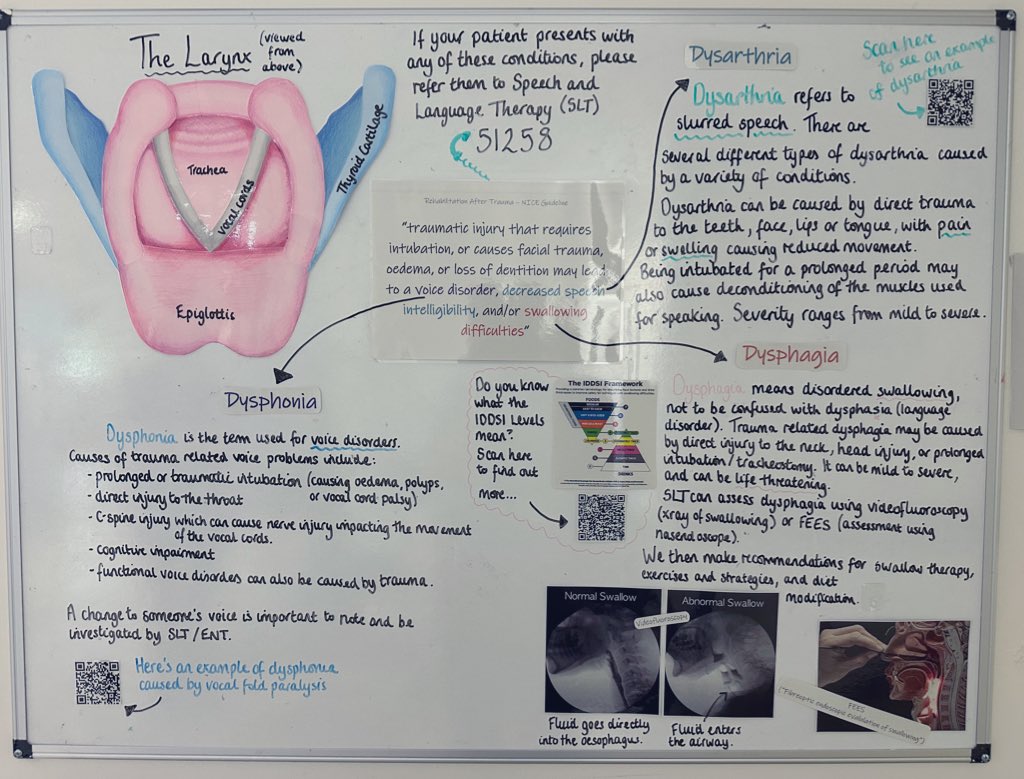 The Larynx (viewed
from
above)
Trachea
vocal cords
Thyroid Cartilage
Epiglottis
If your patient presents with
any of these conditions, please
refer them to Speech and
Language Therapy (SLT)
51258
Rehabilitation After Trauma – NICE Guideline
"traumatic injury that requires
intubation, or causes facial trauma,
oedema, or loss of dentition may lead
to a voice disorder, decreased speech
intelligibility, and/or swallowing
difficulties"
Dysarthria
Scan here
to see an example
of dysarthria
Dysarthria refers to
slurred speech. There are
several different types of dysarthria caused
by a variety of conditions.
Dysarthria can be caused by direct trauma
to the teeth, face, lips or tongue, with pain
or swelling causing reduced movement.
Being intubated for a prolonged period may
also cause deconditioning of the muscles used
for speaking. Severity ranges from mild to severe.
Dysphonia
Dysphonia is the term used for voice disorders.
Causes of trauma related voice problems include:
- prolonged or traumatic intubation (causing oedema, polyps,
or vocal cord palsy)
- direct injury to the throat
- C-spine injury which can cause nerve injury impacting the movement
of the vocal cords.
- cognitive impairment
- functional voice disorders can also be caused by trauma.
A change to someone's voice is important to note and be
investigated by SLT/ENT.
Here's an example of dysphonia
caused by vocal fold paralysis
Do you know
what the
IDDSI Levels
mean?
Scan here
to find out
more...
The IDDSI Framework
FOODS
DRINKS
Dysphagia
Dysphagia means disordered swallowing,
not to be confused with dysphasia (language
disorder). Trauma related dysphagia may be caused
by direct injury to the neck, head injury, or prolonged
intubation/tracheostomy. It can be mild to severe,
and can be life threatening.
SLT can assess dysphagia using videofluoroscopy
(xray of swallowing) or FEES (assessment using
nasendoscope).
We then make recommendations for swallow therapy,
exercises and strategies, and diet
modification.
Normal Swallow
Abnormal Swallow
Videofluoroscopy
Fluid goes directly
into the oesophagus.
Fluid enters
the airway.
FEES
("Fibreoptic endoscopic evaluation of swallowing")